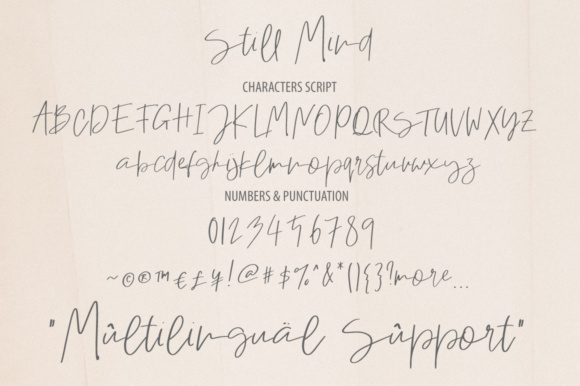 Still Mind
CHARACTERS SCRIPT
ABCDEFGHIJKLMNOPQRSTUVWXYZ
abcdefghijklmnopqrstuvwxyz
NUMBERS & PUNCTUATION
0123456789
~©®™€£¥!@#$%^&*(){}?more...
"Mûltilinguäl Sûpport"